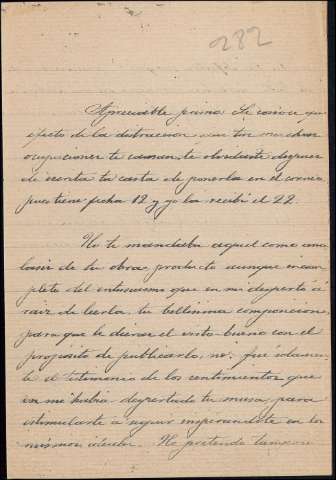 282
Apreciable primo: Se conoce que
efecto de la distraccion, que tus muchas
ocupaciones te causan, te olvidaste despues
de escrita tu carta de ponerla en el correo
pues tiene fecha 12 y yo la recibí el 22.
No te mandaba aquel como ana-
lisis de tu obra, producto aunque incom-
pleto del entusiasmo que en mi despertó á
raiz de leerla, tu bellisima composicion,
para que le dieras el visto bueno con el
propósito de publicarlo, no: fué solamen-
te el testimonio de los sentimientos que
en mi habia despertado tu musa, para
estimularte á seguir inspirandote en los
mismos ideales. No pretendo tampoco